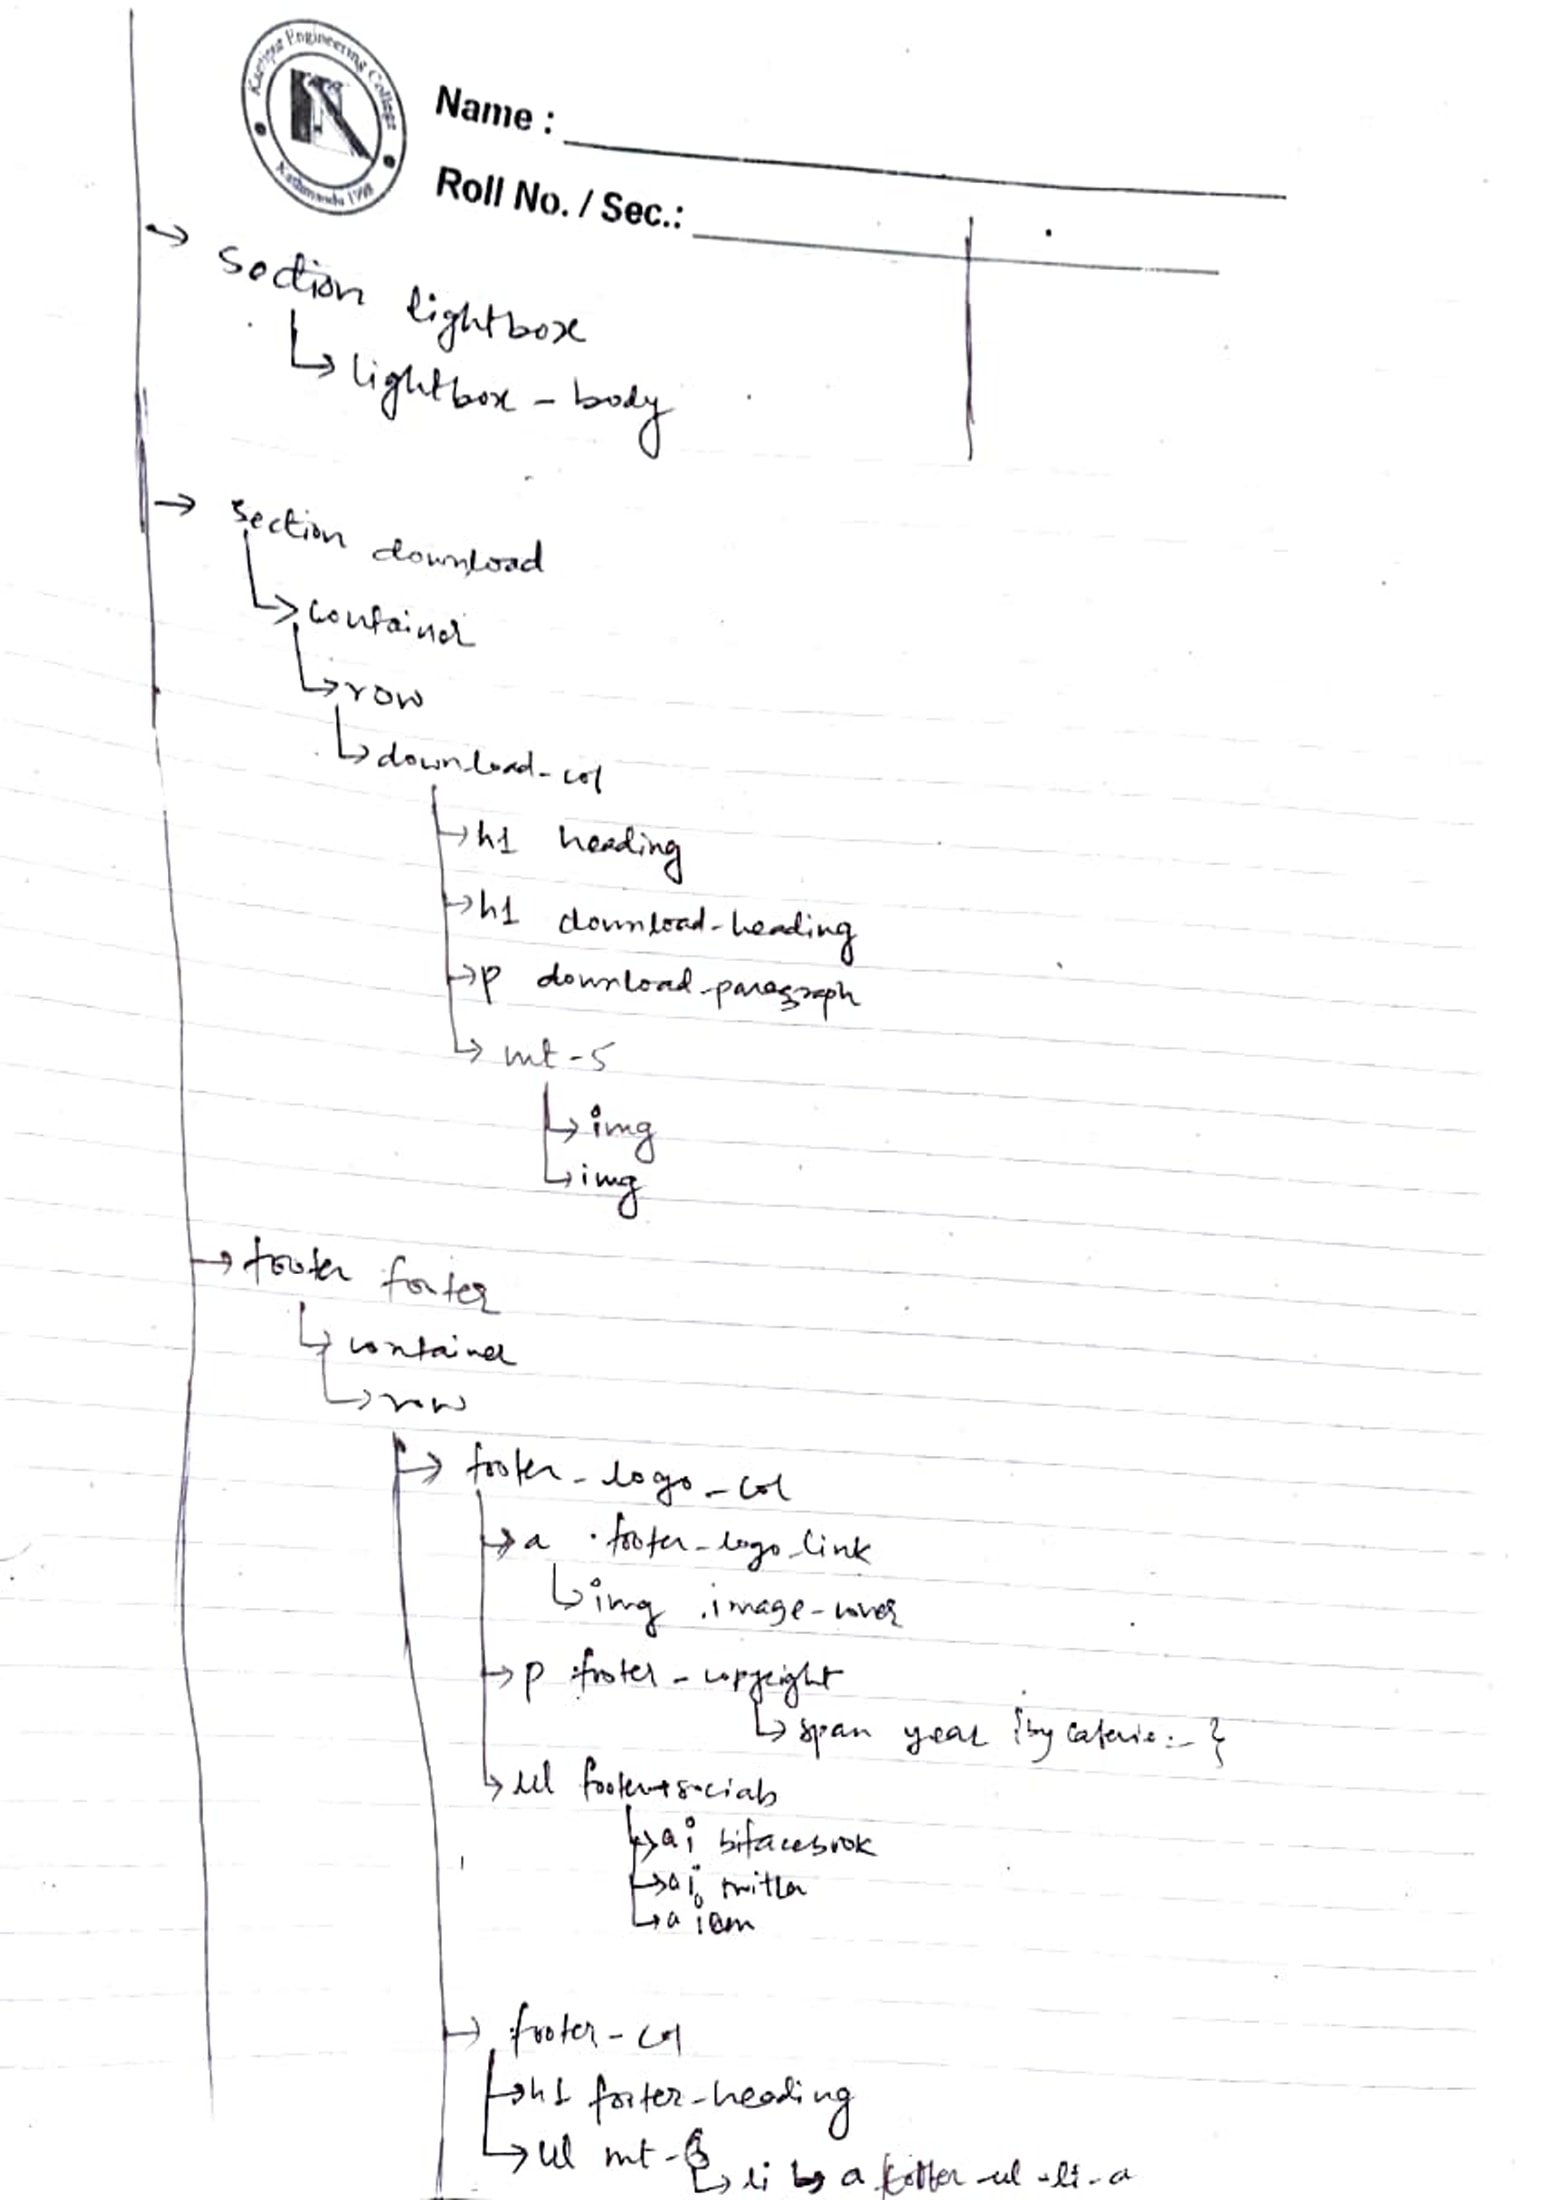 Kantipur Engineering College
Kathmandu 1998
Name :
Roll No. / Sec.:
→ section lightbox
↳ lightbox - body
→ section download
↳ container
↳ row
↳ download-col
→ h1 heading
→ h1 download-heading
→ p download-paragraph
↳ mt-5
→ img
↳ img
→ footer footer
↳ container
↳ row
→ footer-logo-col
→ a .footer-logo-link
↳ img .image-cover
→ p footer-copyright
↳ span year {by
↳ ul footer-socials
→ a i bifacebook
→ a i twitter
↳ a i
→ footer-col
→ h1 footer-heading
↳ ul mt-
↳ li ↳ a footer-ul-li-a